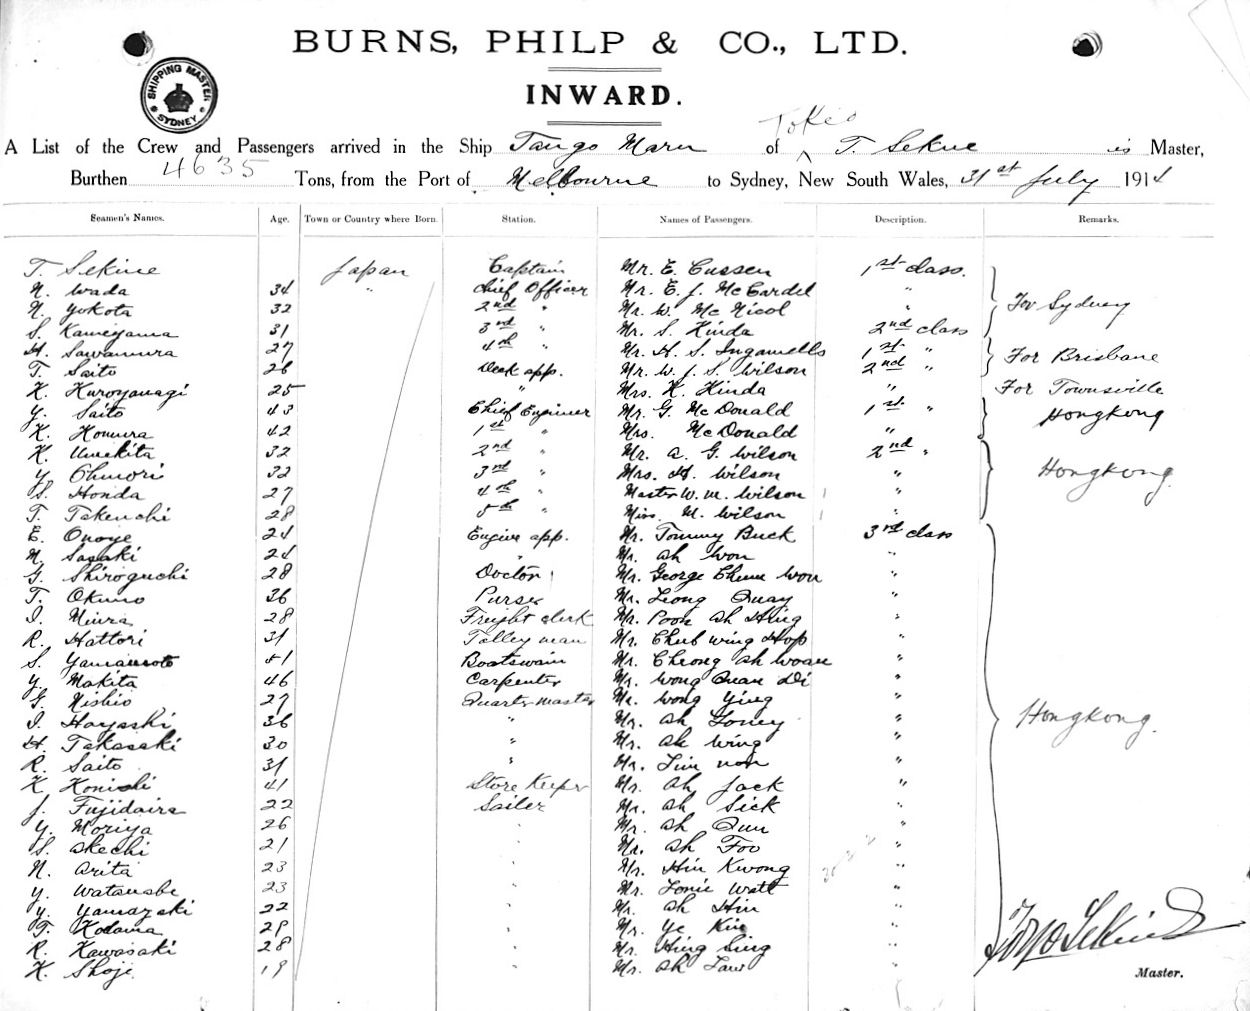 BURNS, PHILP & CO., LTD.
SHIPPING MASTER SYDNEY
INWARD.
Tokio
A List of the Crew and Passengers arrived in the Ship Tango Maru of T. Sekine is Master,
Burthen 4635 Tons, from the Port of Melbourne to Sydney, New South Wales, 31st July 1914
Seamen's Names. Age. Town or Country where Born. Station. Names of Passengers. Description. Remarks.
T. Sekine Japan Captain Mr. E. Cussen 1st class.
N. Wada 34 " Chief Officer Mr. E. J. McCardel "
N. Yokota 32 2nd " Mr. W. McNicol " For Sydney
S. Kameyama 31 3rd " Mr. S. Hinda 2nd class
H. Sawamura 27 4th " Mr. H. S. Ingamells 1st "
T. Saito 26 Deck app. Mr. W. J. S. Wilson 2nd " For Brisbane
K. Kuroyanagi 25 " Mrs. K. Hinda " For Townsville
Y. Saito 43 Chief Engineer Mr. G. McDonald 1st " Hongkong
K. Homura 42 1st " Mrs. McDonald "
K. Umekita 32 2nd " Mr. A. G. Wilson 2nd "
Y. Ohmori 32 3rd " Mrs. H. Wilson " Hongkong
S. Honda 27 4th " Master W. M. Wilson "
T. Takeuchi 28 5th " Miss. M. Wilson "
E. Onoye 24 Engine app. Mr. Tommy Buck 3rd class
N. Sasaki 24 " Mr. Ah Won "
G. Shiroguchi 28 Doctor Mr. George Chum Won "
T. Okuno 36 Purser Mr. Leong Quay "
I. Miura 28 Freight clerk Mr. Poon Ah Hing "
R. Hattori 31 Talley man Mr. Chub Wing Hop "
S. Yamamoto 41 Boatswain Mr. Cheong Ah Woan "
Y. Makita 46 Carpenter Mr. Wong Quan Di "
G. Nishio 27 Quarter master Mr. Wong Ying "
I. Hayashi 36 " Mr. Ah Loney " Hongkong.
H. Takasaki 30 " Mr. Ah Wing "
R. Saito 31 " Mr. Lim "
K. Konishi 41 Store Keeper Mr. Ah Jack "
J. Fujidaira 22 Sailer Mr. Ah Sick "
Y. Moriya 26 " Mr. Ah Qun "
S. Akechi 21 " Mr. Ah Foo "
N. Arita 23 " Mr. Hin Kwong "
Y. Watanabe 23 " Mr. Lonie Watt "
Y. Yamazaki 22 " Mr. Ah Hin "
T. Kodama 28 " Mr. Ye Kin "
R. Kawasaki 28 " Mr. Hing Sing "
K. Shoji 19 " Mr. Ah Law "
Tozo Sekine
Master.